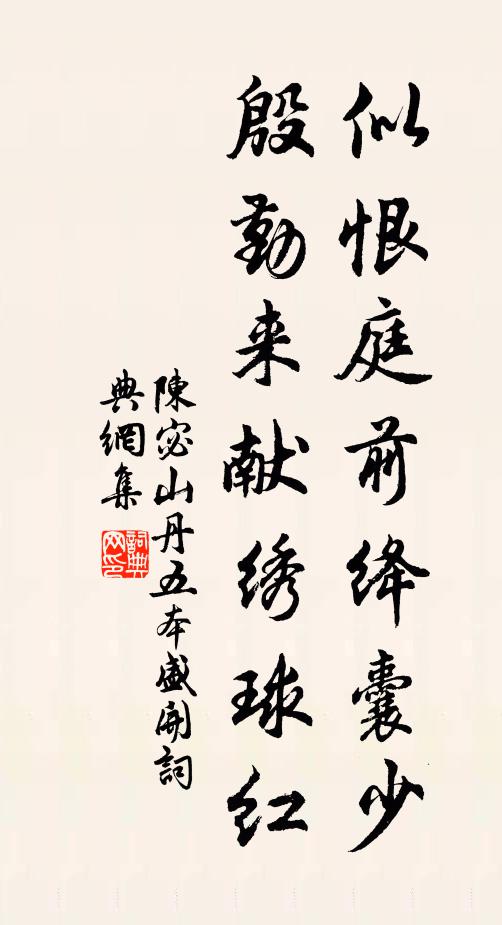 似恨庭前绛囊少
殷勤来献绣球红
陳宓山丹五本盛開詞
典網集
詞典
网印